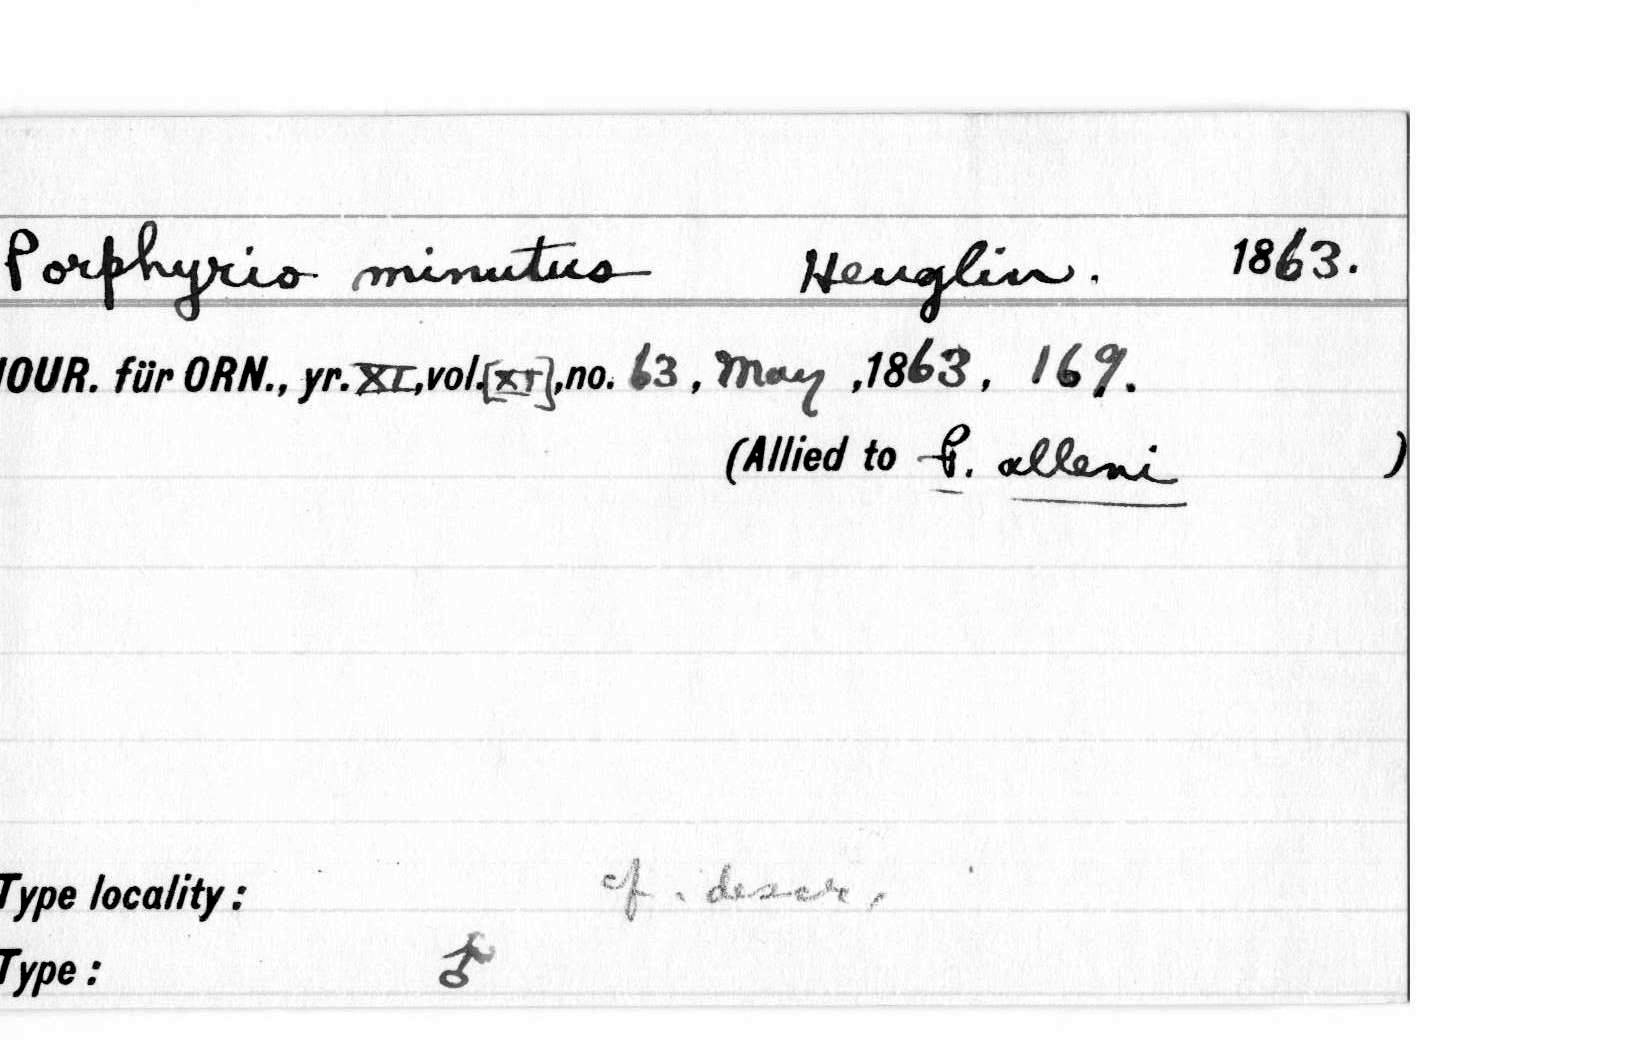 Porphyrio minutus Heuglin. 1863.
JOUR. für ORN., yr. XI, vol. [XI], no. 63, May, 1863, 169.
(Allied to P. alleni )
Type locality: cf. descr.
Type: ♂